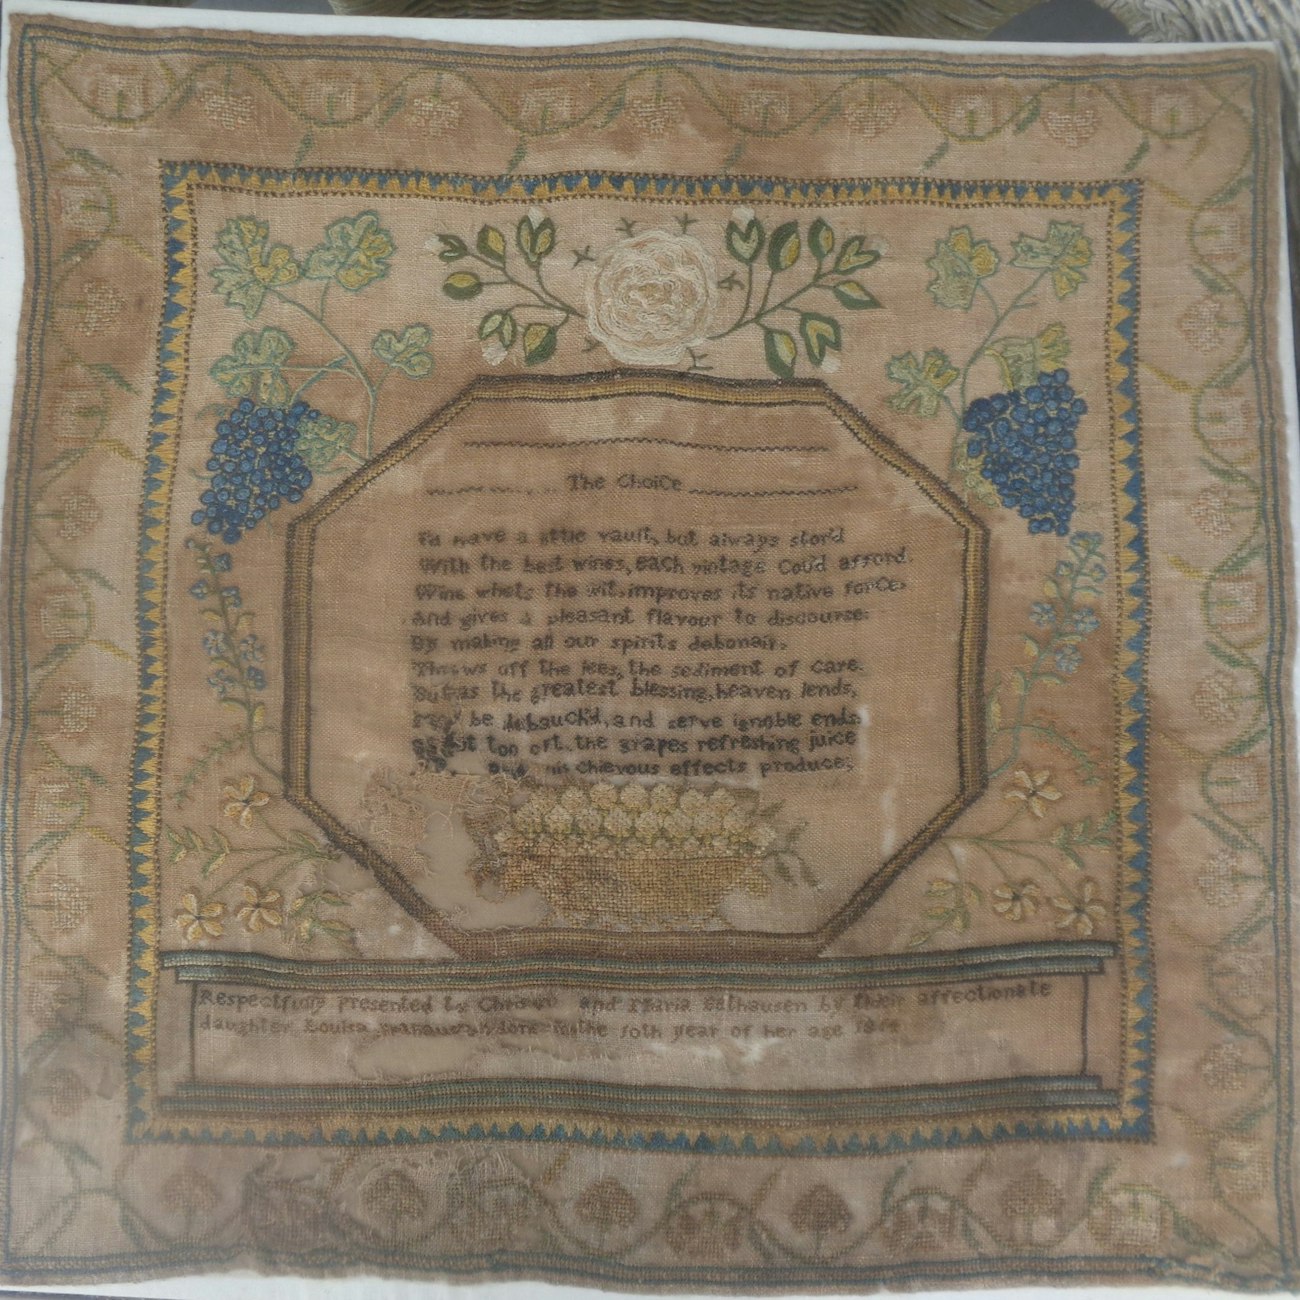 The Choice
I'd have a little vault, but always stor'd
With the best wines, each vintage Cou'd afford.
Wine whets the wit, improves its native force,
And gives a pleasant flavour to discourse:
By making all our spirits debonair,
Throws off the lees, the sediment of care.
But as the greatest blessing, heaven lends,
may be debauch'd, and serve ignoble ends:
too oft, the grapes refreshing juice
mischievous effects produce,
Respectfully presented by and Maria by their affectionate
daughter Louisa the 10th year of her age